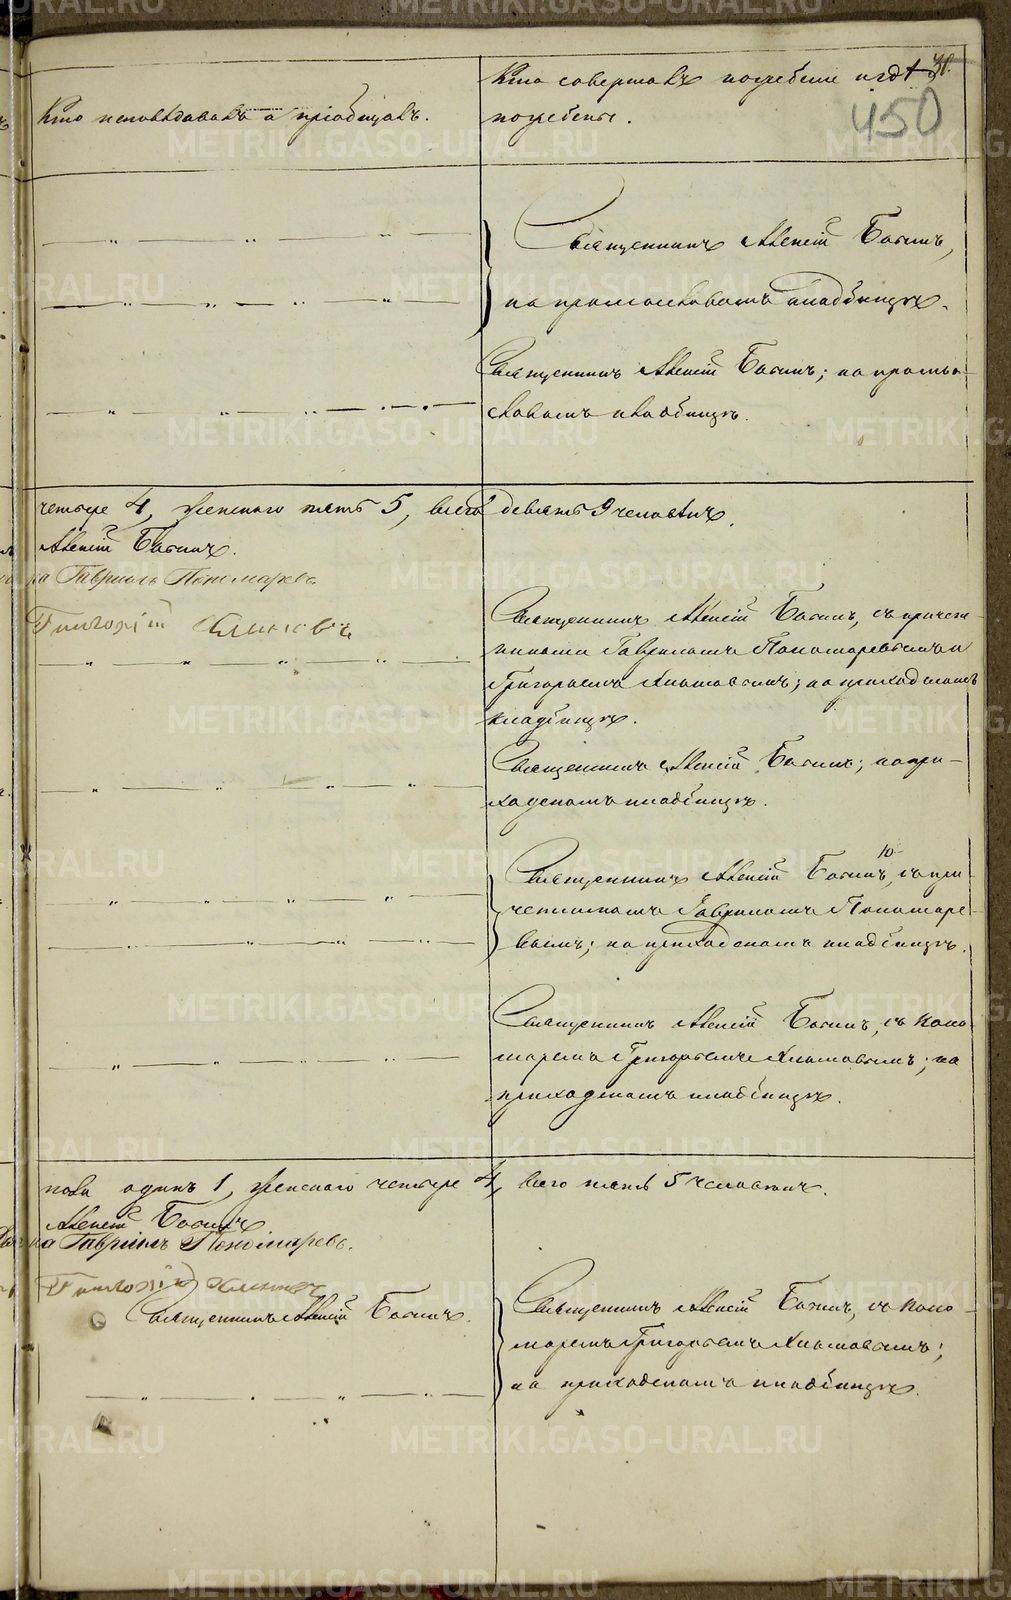 Кто исповѣдавалъ и пріобщалъ.
Кто совершалъ погребеніе и гдѣ
погребены.
450
Священникъ Алексій Богинъ,
на кладбищѣ.
Священникъ Алексій Богинъ; на
кладбищѣ.
четыре 4, женскаго пять 5, всего девять 9 человѣкъ.
Алексій Богинъ.
Гавріилъ Пономаревъ
Григорій
Священникъ Алексій Богинъ, съ причет-
никами Гавріиломъ Пономаревымъ и
Григорьемъ; на приходскомъ
кладбищѣ.
Священникъ Алексій Богинъ; на при-
ходскомъ кладбищѣ.
10
Священникъ Алексій Богинъ, съ при-
четникомъ Гавріиломъ Пономаре-
вымъ; на приходскомъ кладбищѣ.
Священникъ Алексій Богинъ, съ поно-
маремъ Григорьемъ; на
приходскомъ кладбищѣ.
пола одинъ 1, женскаго четыре 4, всего пять 5 человѣкъ.
Алексій Богинъ
Гавріилъ Пономаревъ.
Григорій
Священникъ Алексій Богинъ.
Священникъ Алексій Богинъ, съ поно-
маремъ Григорьемъ;
на приходскомъ кладбищѣ.
METRIKI.GASO-URAL.RU